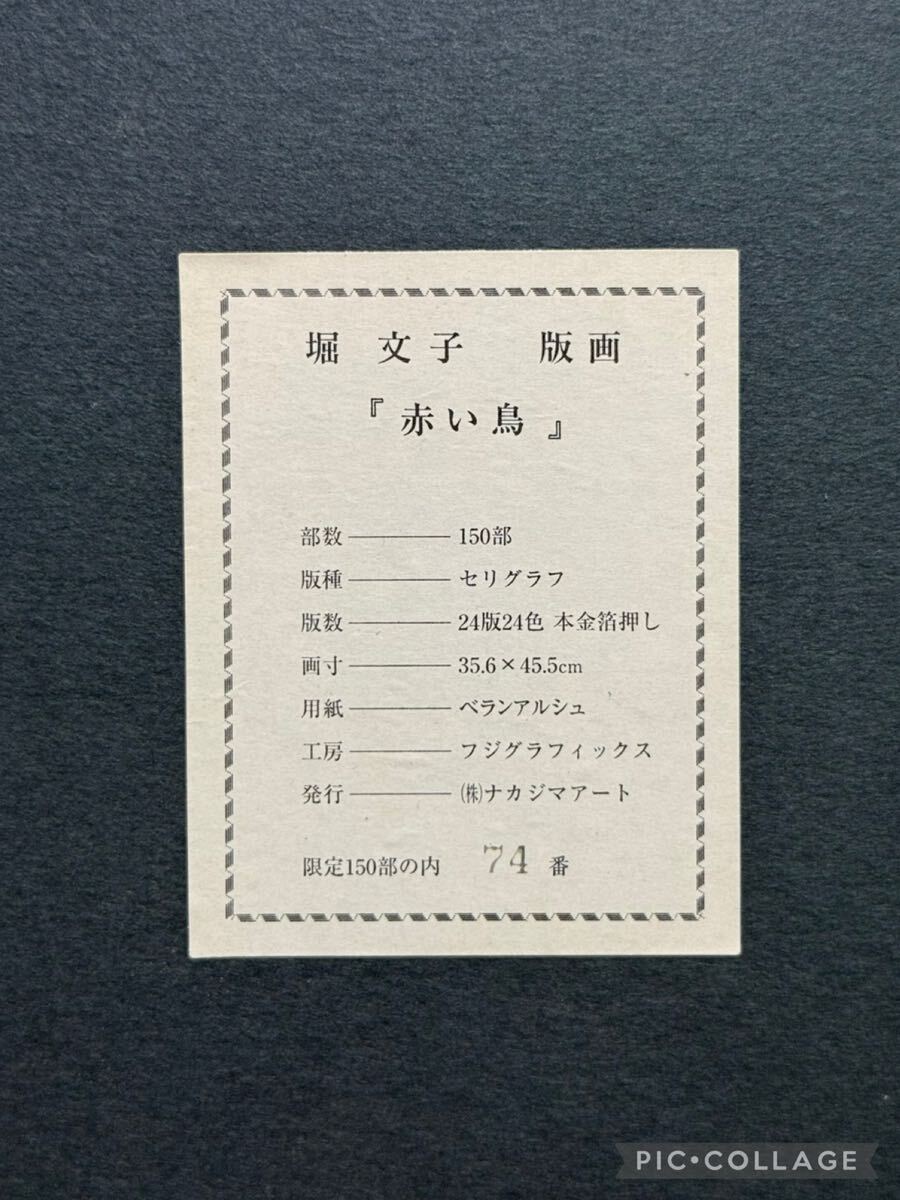 堀 文子 版画
『赤い鳥』
部数 ――― 150部
版種 ――― セリグラフ
版数 ――― 24版24色 本金箔押し
画寸 ――― 35.6×45.5cm
用紙 ――― ベランアルシュ
工房 ――― フジグラフィックス
発行 ――― ㈱ナカジマアート
限定150部の内 74 番
PIC•COLLAGE